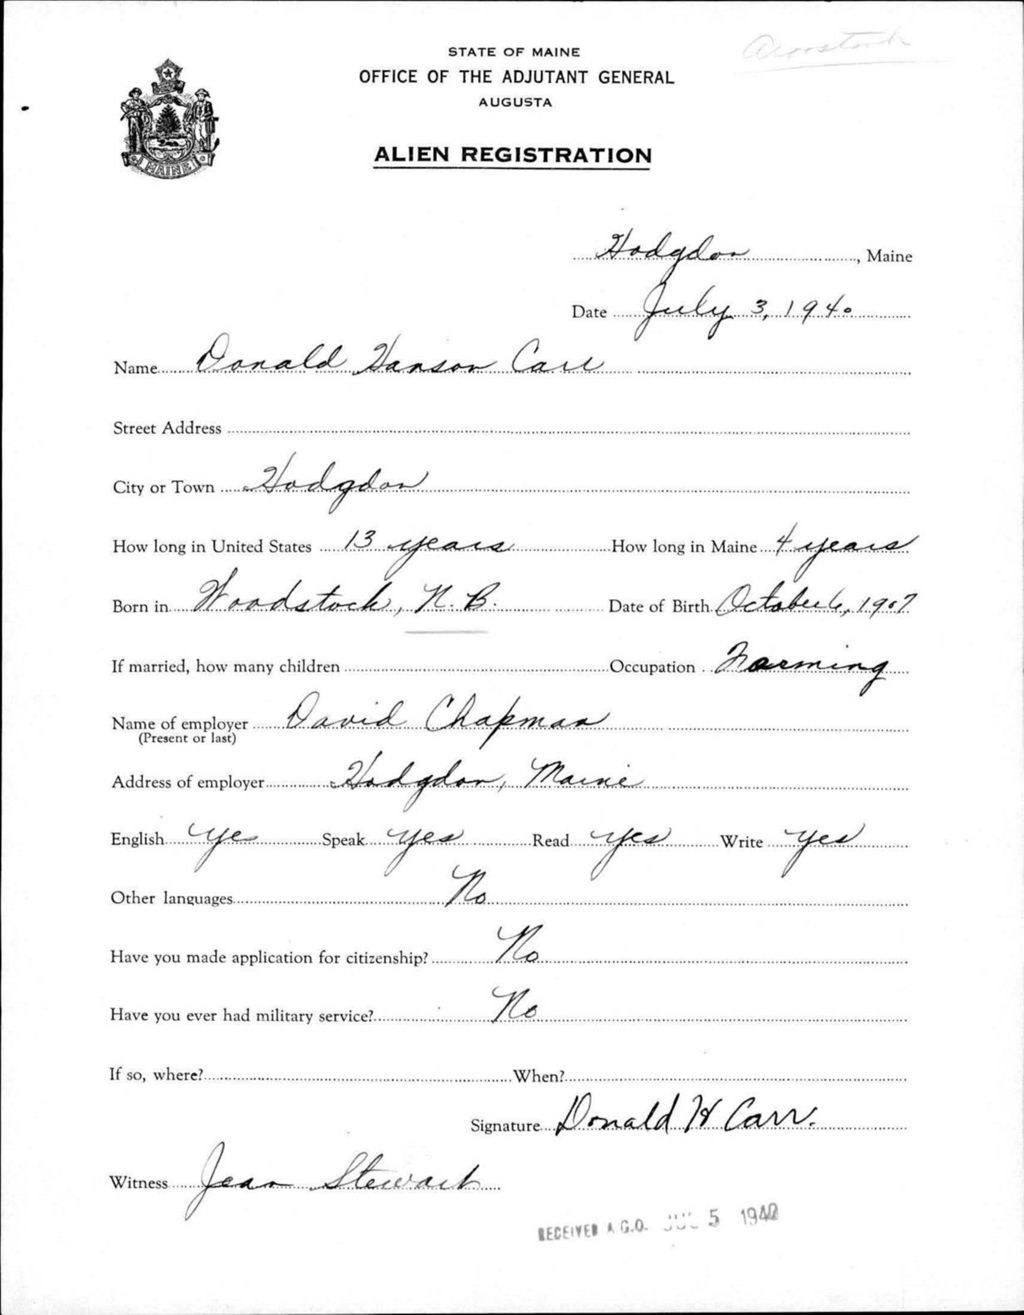 Aroostook
STATE OF MAINE
OFFICE OF THE ADJUTANT GENERAL
AUGUSTA
ALIEN REGISTRATION
MAINE
Hodgdon, Maine
Date July 3, 1940
Name Donald Hanson Carr
Street Address
City or Town Hodgdon
How long in United States 13 years How long in Maine 4 years
Born in Woodstock, N. B. Date of Birth October 6, 1907
If married, how many children Occupation Farming
Name of employer David Chapman
(Present or last)
Address of employer Hodgdon, Maine
English Yes Speak Yes Read Yes Write Yes
Other languages No
Have you made application for citizenship? No
Have you ever had military service? No
If so, where? When?
Signature Donald H Carr.
Witness Jean Stewart
RECEIVED A.G.O. JUL 5 1940